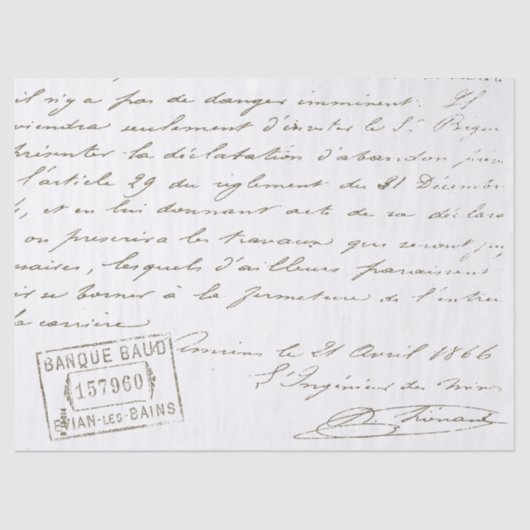 il n'y a pas de danger imminent. Il
viendra seulement d'inviter le Sr
présenter la déclaration d'abandon
l'article 29 du règlement du 31 Décemb
et en lui donnant acte de sa déclara
on prescrira les travaux qui seront
saires, lesquels d'ailleurs paraissent
se borner à la fermeture de l'entré
la carrière
Amiens le 21 Avril 1866
L'Ingénieur des Mines
BANQUE BAUD
157960
EVIAN-LES-BAINS